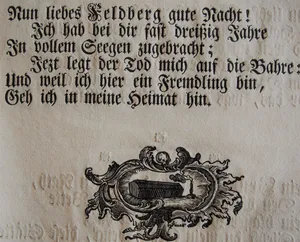 Nun liebes Feldberg gute Nacht!
Ich hab bei dir fast dreißig Jahre
In vollem Seegen zugebracht;
Jezt legt der Tod mich auf die Bahre:
Und weil ich hier ein Fremdling bin,
Geh ich in meine Heimat hin.